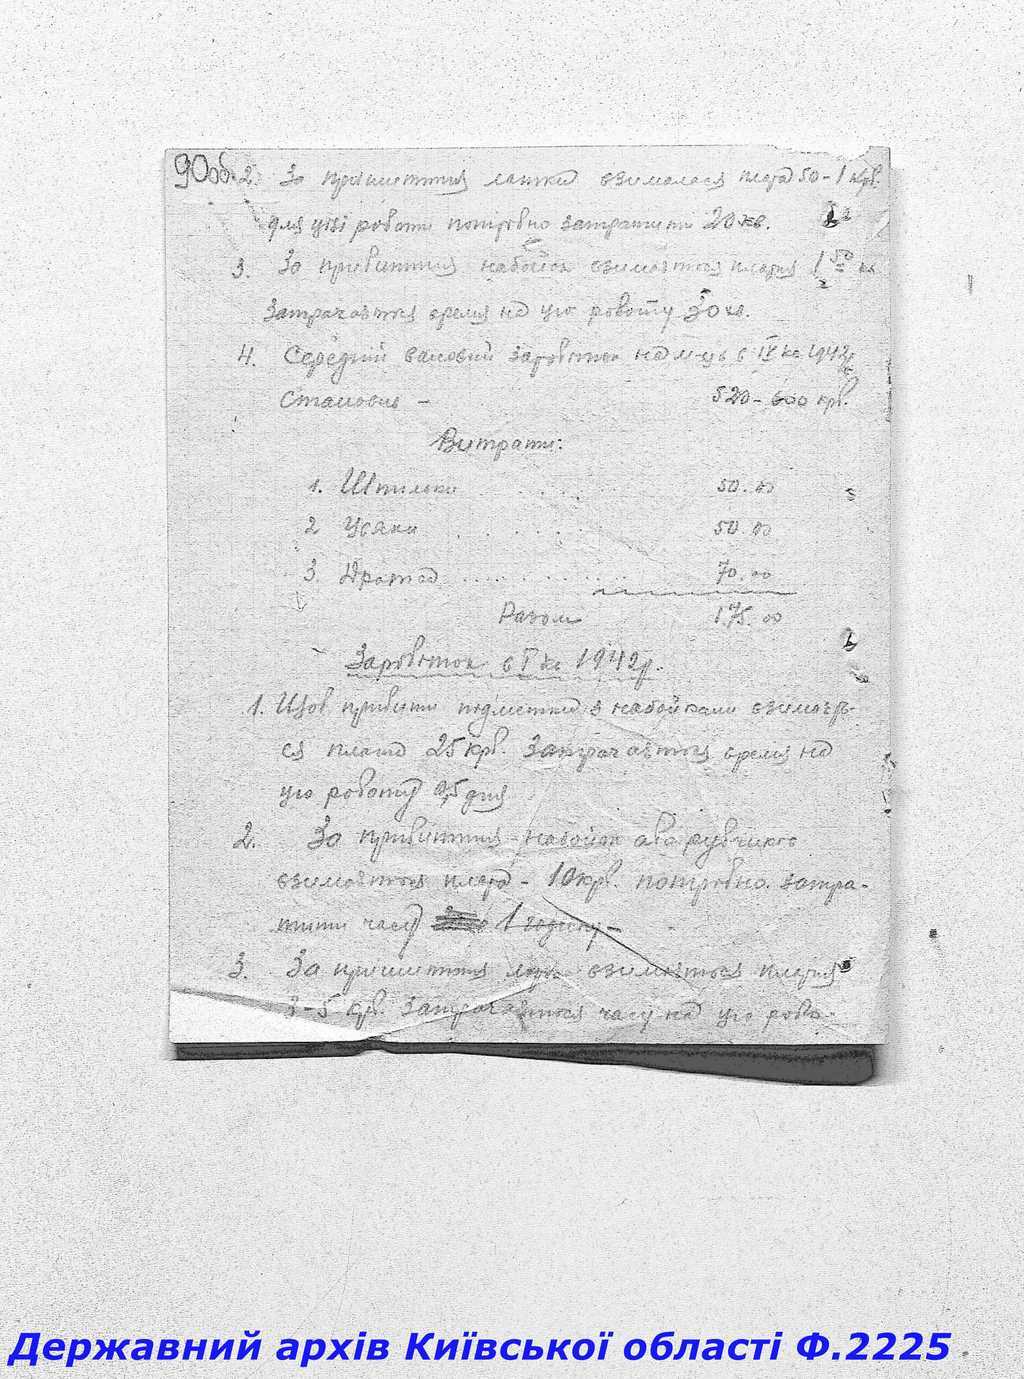 90об.
2. За пришиття латки взималася плата 50 - 1 крб.
для цієї роботи потрібно затратити 20 хв.
3. За прибиття набойок взимається платня 1 50
затрачається время на цю роботу 30 хв.
4. Середній валовий заробіток на м-ць в IV кв. 1942р
становив - 520 - 600 крб.
Витрати:
1. Шпильки . . . . . 50.00
2 Цвяхи . . . . . 50.00
3. Дратва . . . . . 70.00
Разом 175.00
Заробіток в I кв 1942р.
1. Щоб прибити підметки з набойками взимаєть-
ся плата 25 крб. Затрачається время на
цю роботу 0,5 дня
2. За прибиття набойок або рубчиків
взимається плата - 10 крб. потрібно затра-
тити часу 1 годину -
3. За пришиття латки взимається платня
3-5 крб. Затрачається часу на цю робо-
Державний архів Київської області Ф.2225